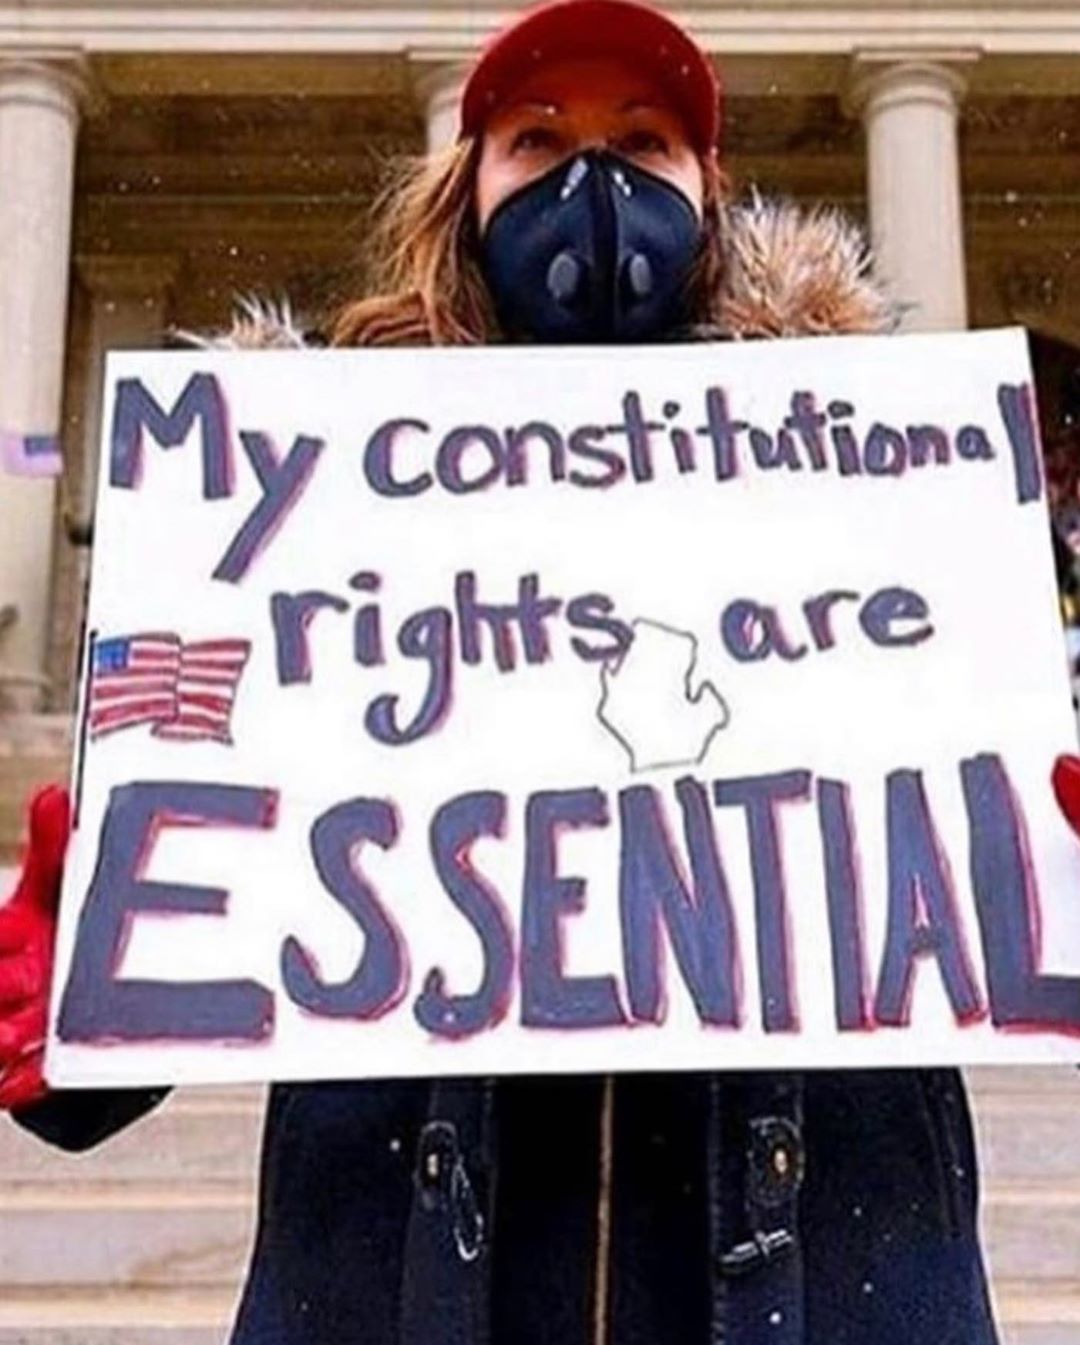 My constitutional
rights are
ESSENTIAL